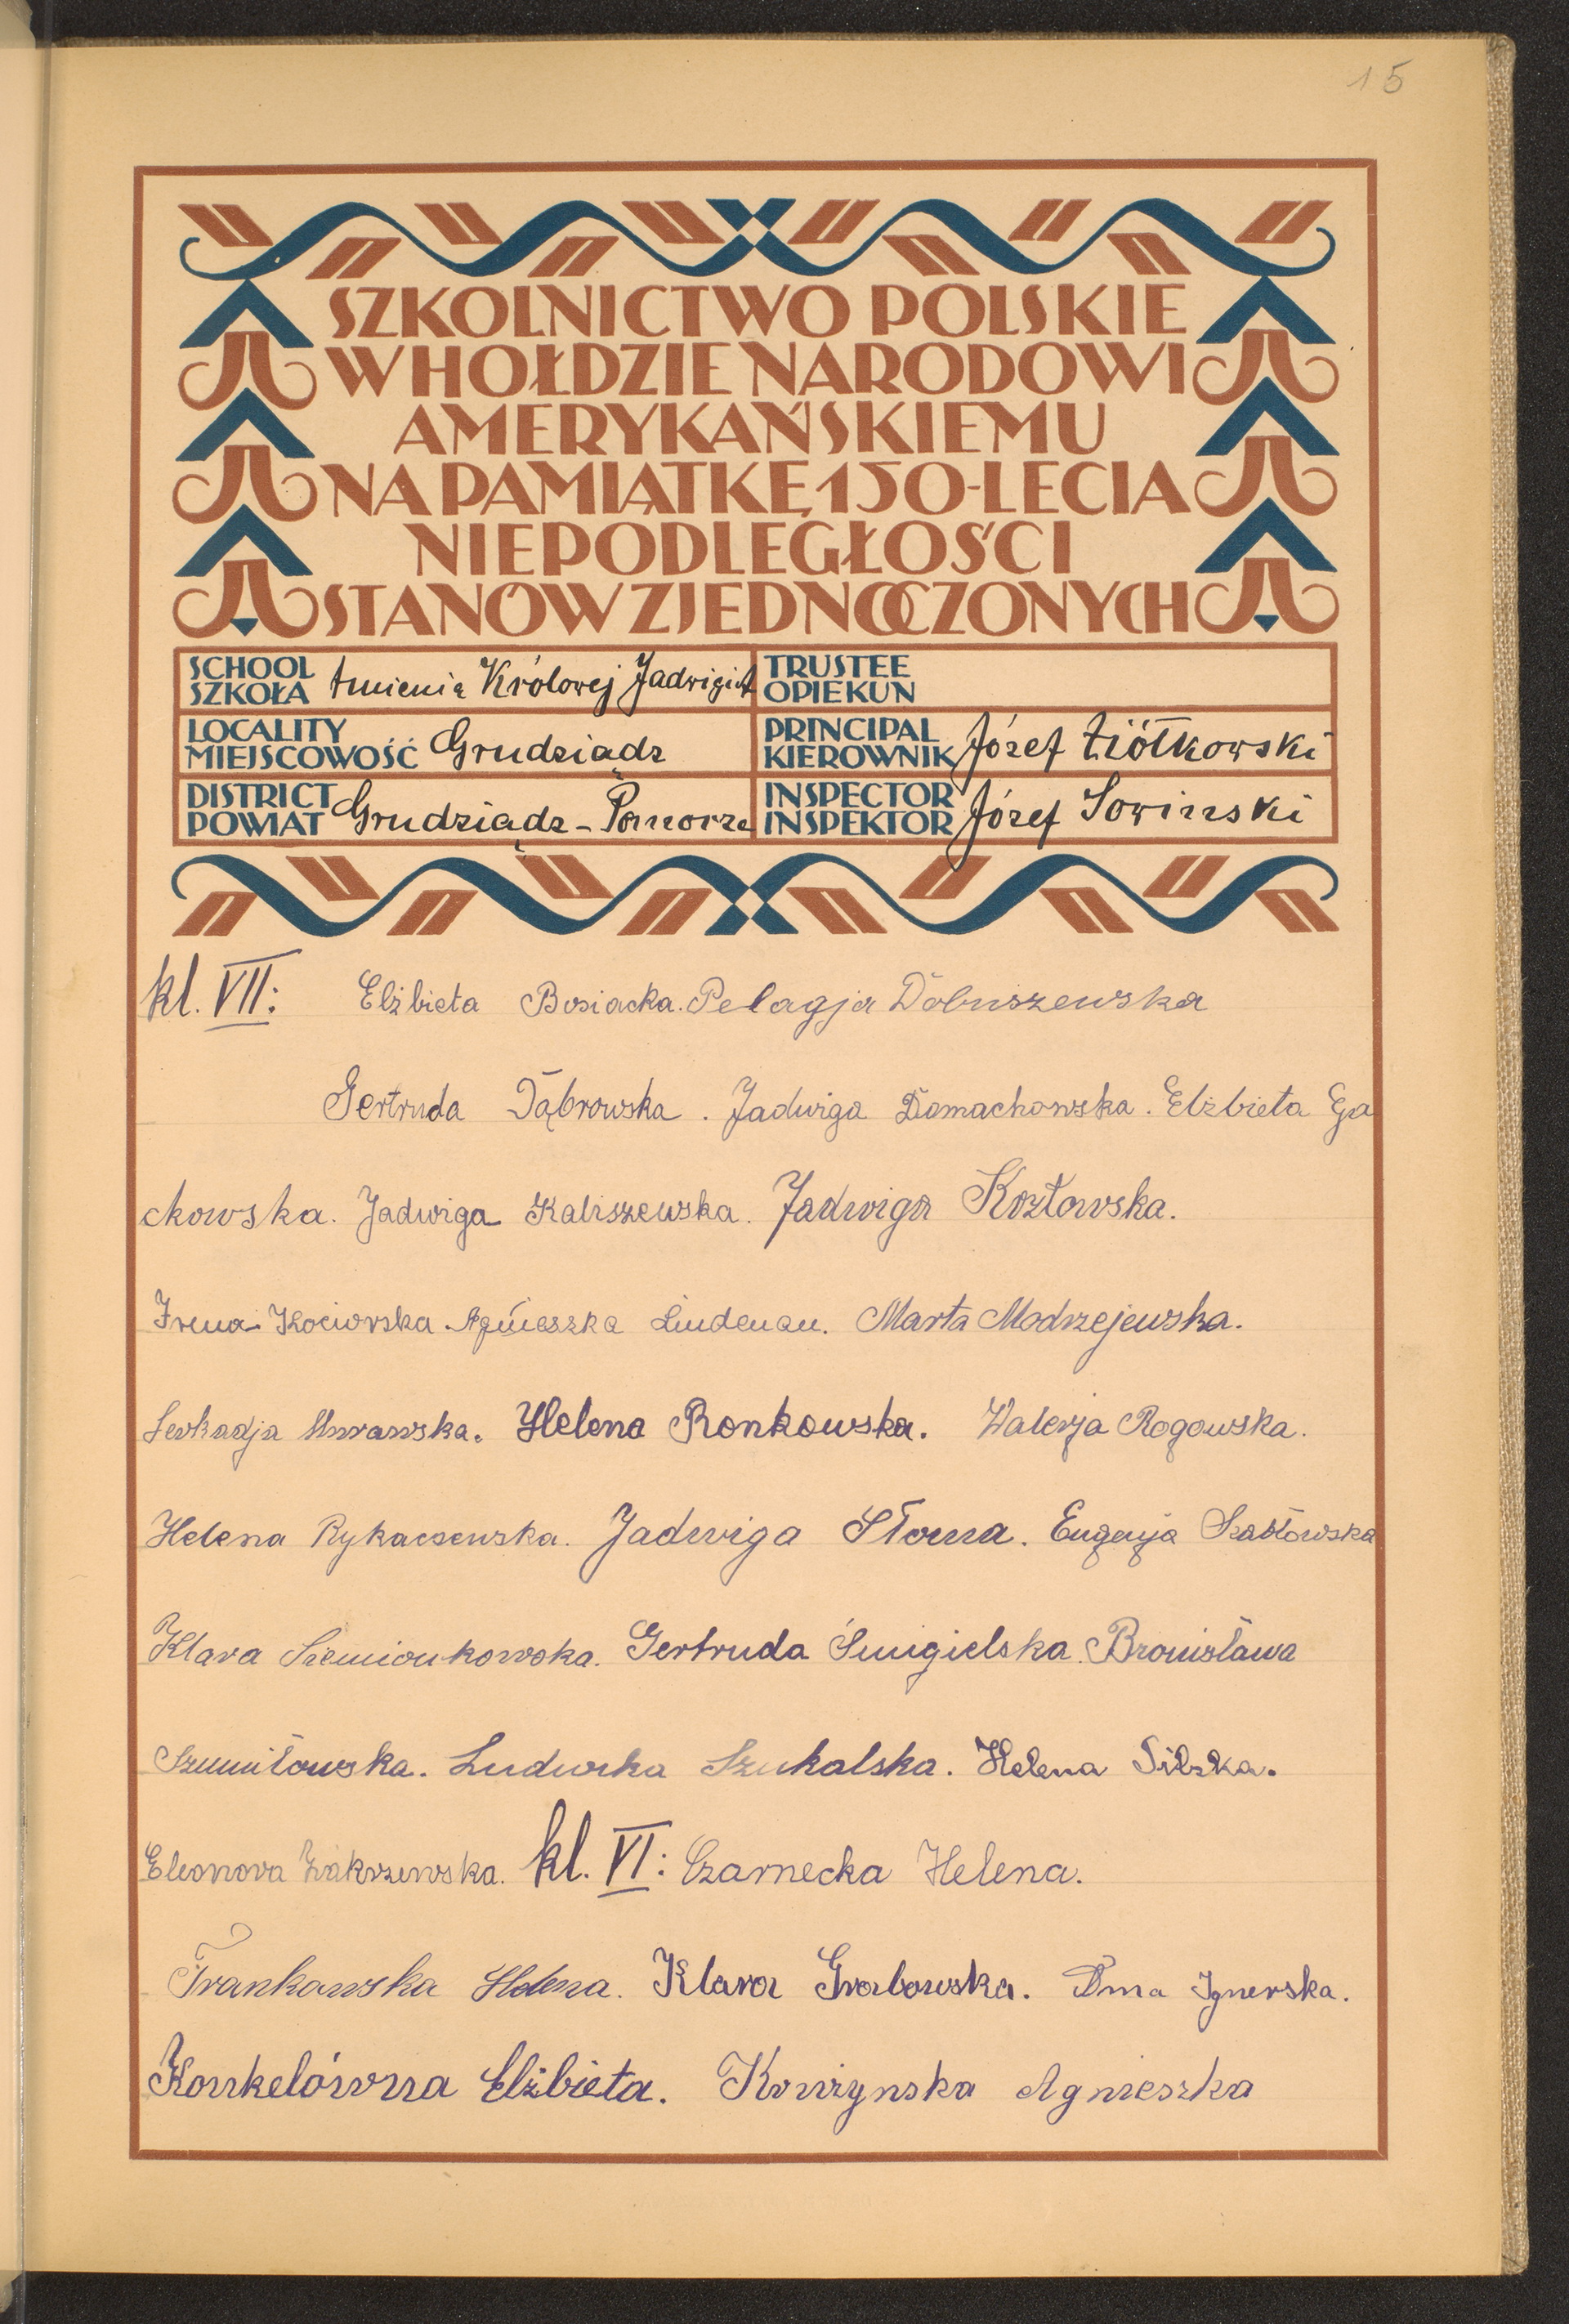 15
SZKOLNICTWO POLSKIE
W HOŁDZIE NARODOWI
AMERYKAŃSKIEMU
NA PAMIĄTKĘ 150-LECIA
NIEPODLEGŁOŚCI
STANÓW ZJEDNOCZONYCH
SCHOOL SZKOŁA Imienia Królowej Jadwigi
TRUSTEE OPIEKUN
LOCALITY MIEJSCOWOŚĆ Grudziądz
PRINCIPAL KIEROWNIK Józef Ziółkowski
DISTRICT POWIAT Grudziądz - Pomorze
INSPECTOR INSPEKTOR Józef Sowinski
kl. VII: Elżbieta Bosiacka. Pelagja Dobuszewska
Gertruda Dąbrowska. Jadwiga Domachowska. Elżbieta Ga
chowska. Jadwiga Kaliszewska. Jadwiga Kozłowska.
Irena Kociowska. Agnieszka Lindenau. Marta Modrzejewska.
Leokadja Murawska. Helena Ronkowska. Walerja Rogowska.
Helena Rykaczewska. Jadwiga Słoma. Eugenja Szabłowska
Klara Siemionkowska. Gertruda Śmigielska. Bronisława
Szumiłowska. Ludwika Szukalska. Helena
Eleonora Zakrzewska. kl. VI: Czarnecka Helena.
Frankowska Helena. Klara Grabowska. Ignerska.
Konkelówna Elżbieta. Agnieszka